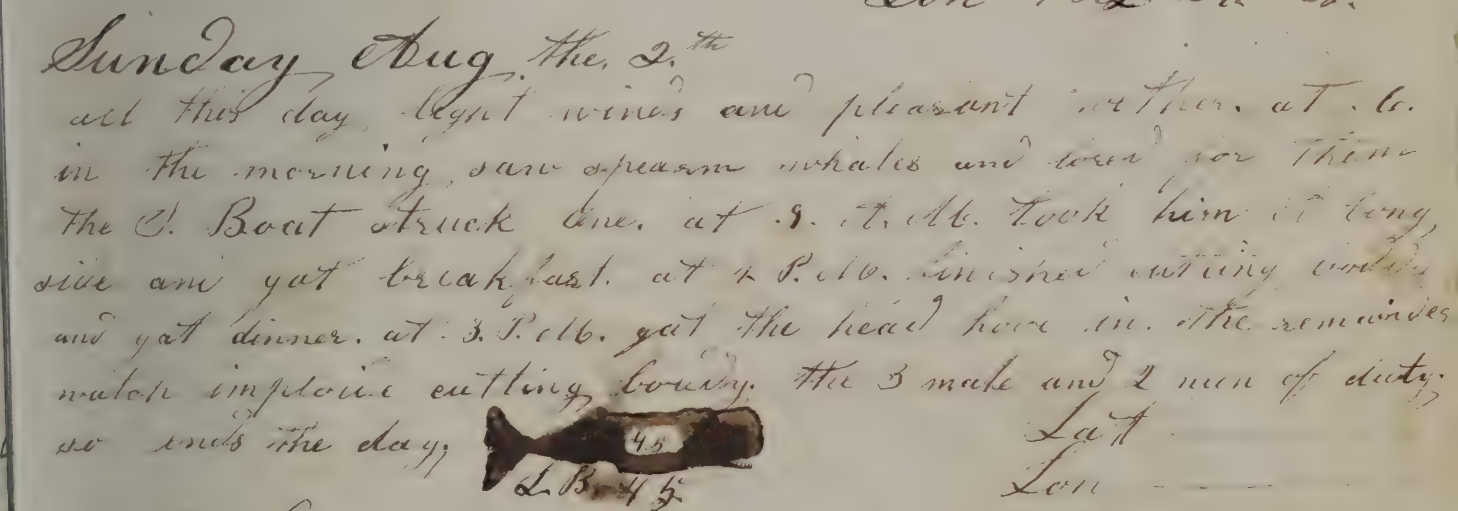 Sunday Aug. the. 2.th
all this day light winds and pleasant wether. at 6.
in the morning saw spearm whales and lored for them
the Boat struck one. at 9. A. M. took him a long
side and gat breakfast. at 1 P. M. finished cutting
and gat dinner. at 3. P. M. gat the head hove in. the remainder
watch imploie cutting boddy. the 3 mate and 2 men of duty.
so ends the day,
45
Latt
L. B. 45
Lon